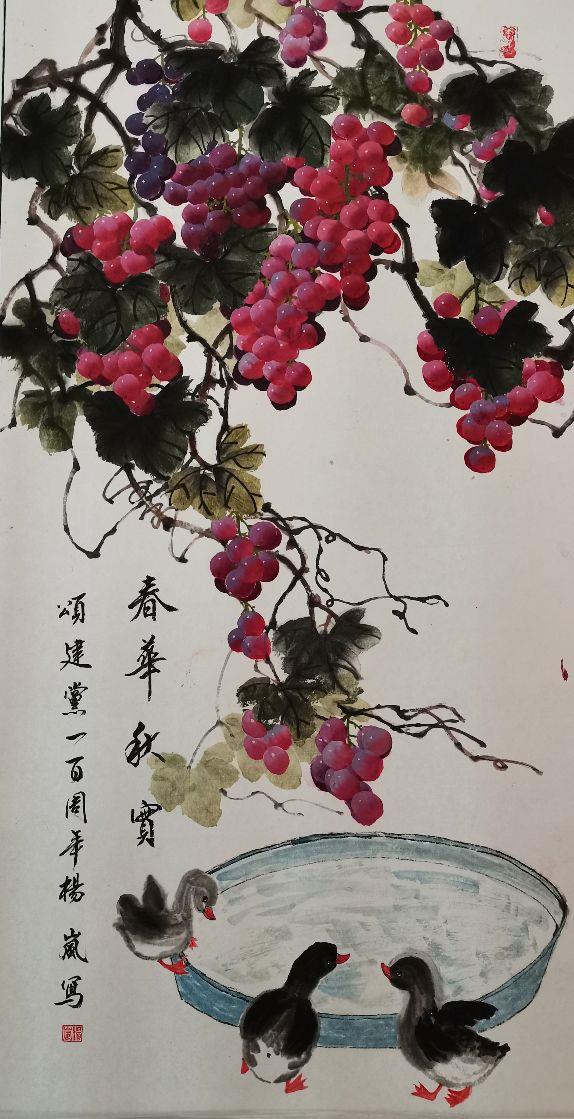 春華秋實
頌建黨一百周年楊嵐寫